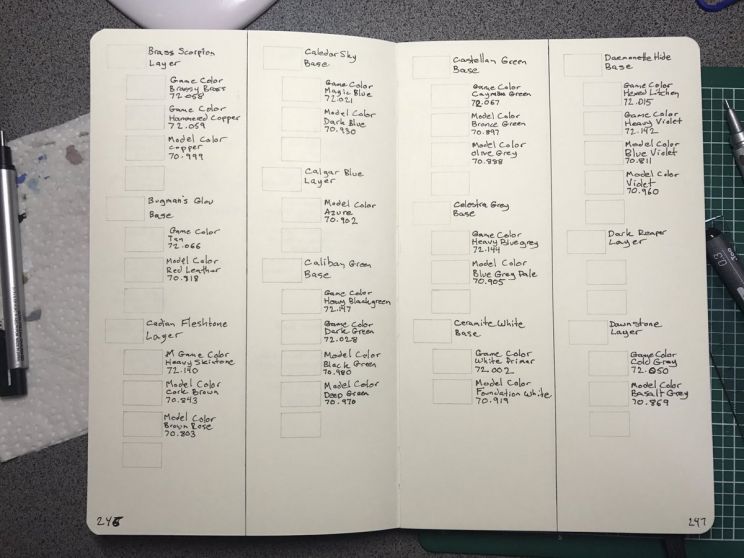 Brass Scorpion
Layer
Game Color
Brassy Brass
72.058
Game Color
Hammered Copper
72.059
Model Color
Copper
70.999
Bugman's Glow
Base
Game Color
Tan
72.066
Model Color
Red Leather
70.818
Cadian Fleshtone
Layer
M Game Color
Heavy Skintone
72.140
Model Color
Cork Brown
70.843
Model Color
Brown Rose
70.803
246
Caledor Sky
Base
Game Color
Magic Blue
72.021
Model Color
Dark Blue
70.930
Calgar Blue
Layer
Model Color
Azure
70.902
Caliban Green
Base
Game Color
Heavy Blackgreen
72.147
Game Color
Dark Green
72.028
Model Color
Black Green
70.980
Model Color
Deep Green
70.970
Castellan Green
Base
Game Color
Cayman Green
72.067
Model Color
Bronze Green
70.897
Model Color
Olive Grey
70.888
Celestra Grey
Base
Game Color
Heavy Bluegrey
72.144
Model Color
Blue Grey Pale
70.905
Ceramite White
Base
Game Color
White Primer
72.002
Model Color
Foundation White
70.919
Daemonette Hide
Base
Game Color
Hexed Lichen
72.015
Game Color
Heavy Violet
72.142
Model Color
Blue Violet
70.811
Model Color
Violet
70.960
Dark Reaper
Layer
Dawnstone
Layer
Game Color
Cold Grey
72.050
Model Color
Basalt Grey
70.869
247
0.3